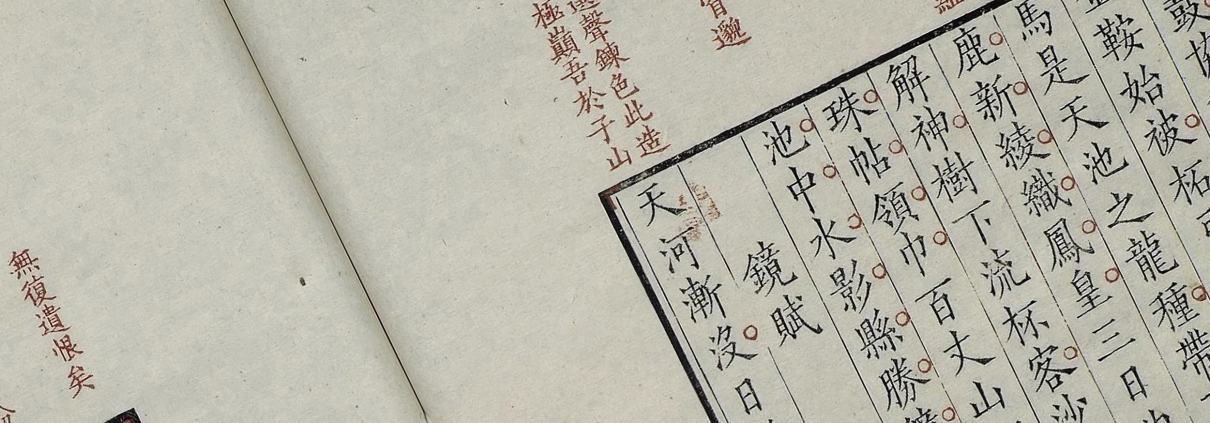 鼓
鞍始被柘
馬是天池之龍種帶
鹿新綾織鳳皇三日
解神樹下流杯客沙
珠帖領巾百丈山
池中水影縣勝
鏡賦
天河漸沒日
邈
聲鍊色此造
極巔吾於子山
無復遺恨矣